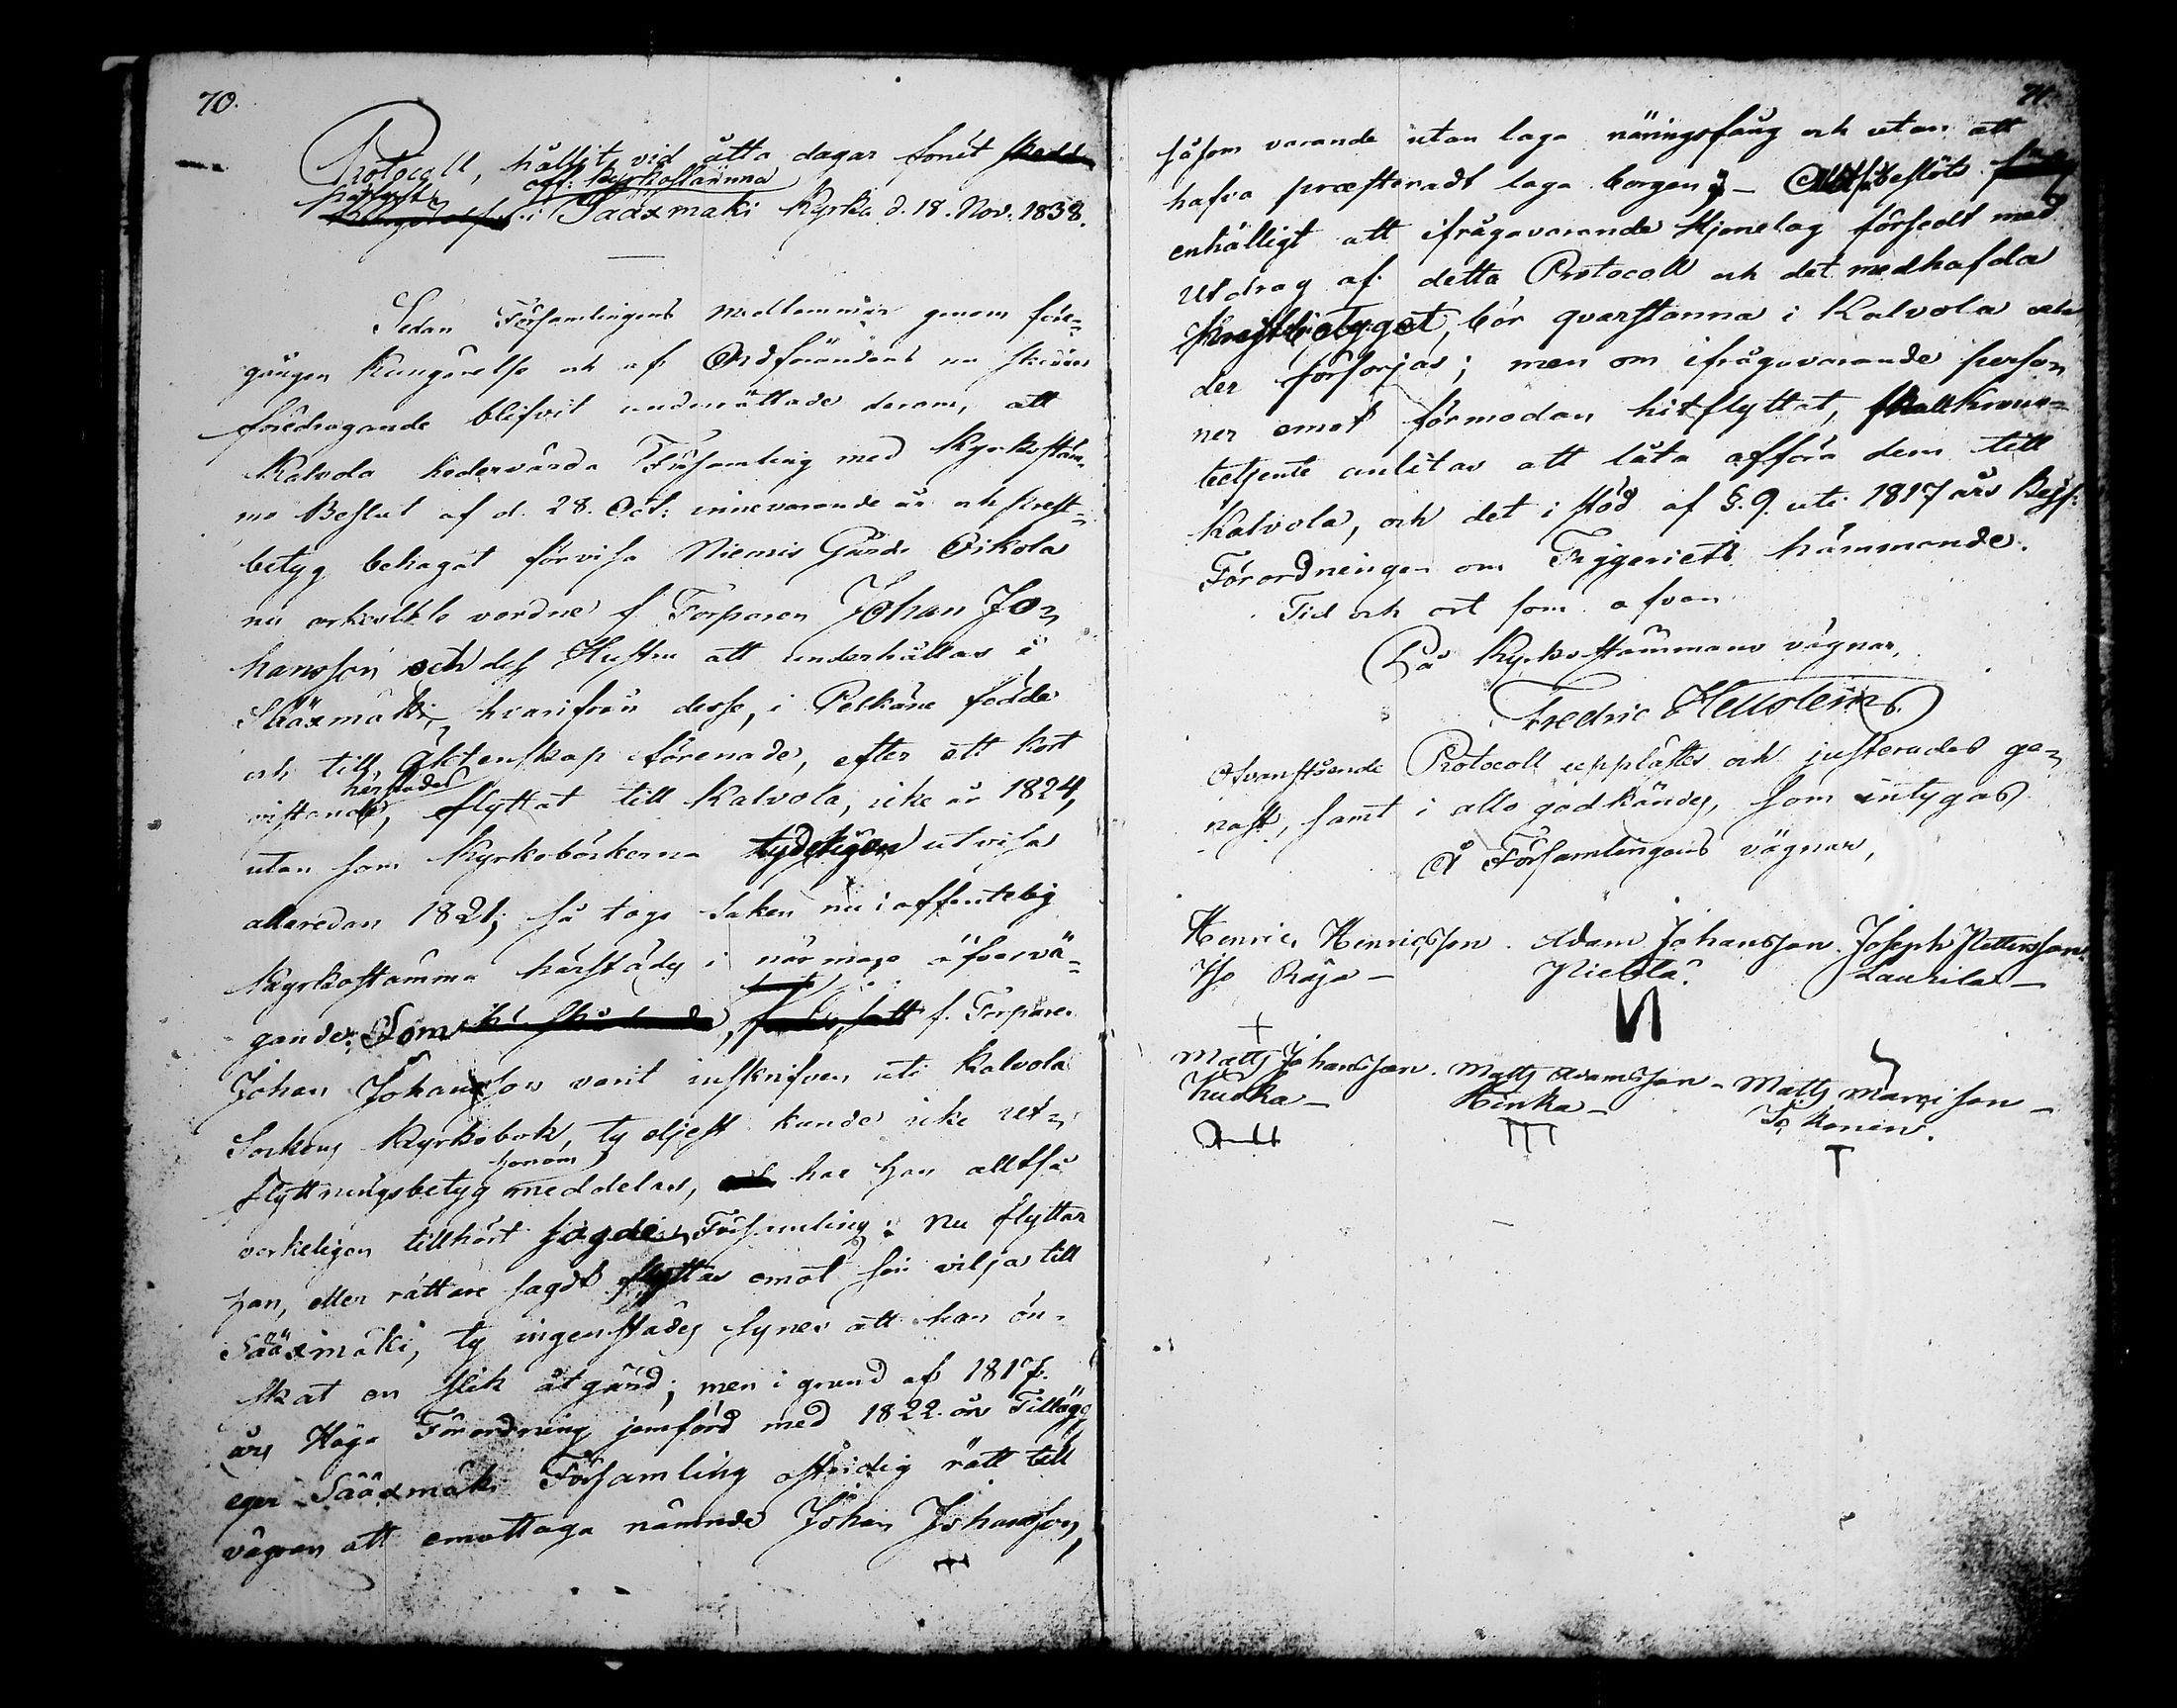 70.
Protocoll, hållit vid åtta dagar förut
pålyst off: kyrkostämma
i Sääxmäki Kyrka d. 18. Nov. 1838.
Sedan Församlingens medlemmar genom före-
gången Kungörelse och af Ordförandens nu skedde
föredragande blifvit underrättade derom, att
Kalvola hedervärda Församling med Kyrkostäm-
mo Beslut af d. 28. Oct: innevarande år och prest-
betyg behagat förvisa Niemis Gårds Oikola
nu orkeslöse vordne f. Torparen Johan Jo-
hansson och dess Hustru att underhållas i
Sääxmäki, hvarifrån desse, i Pelkäne födde
och till äktenskap förenade, efter ett kort
härstädes
vistande, flyttat till Kalvola, icke år 1824,
utan som Kyrkoböckerna tydeligen utvisa
allaredan 1821; så togs saken nu i offentelig
Kyrkostämma härstädes i närmare öfvervä-
gande: Som f. Torparen
Johan Johansson varit inskrifven uti Kalvola
Sockens Kyrkobok, ty eljest kunde icke ut-
honom
flyttningsbetyg meddelas, har han alltså
verkeligen tillhört sagde Församling: nu flyttar
han, eller rättare sagdt flyttas emot sin vilja till
Sääxmäki, ty ingenstädes synes att han ön-
skat en slik åtgärd; men i grund af 1817.
års Höga Förordning jemförd med 1822. års Tillägg
eger Sääxmäki Församling ostridig rätt till
vägran att emottaga nämnde Johan Johansson,
71.
såsom varande utan laga näringsfång och utan att
hafva præsteradt laga borgen; – Altså beslöts
enhälligt att ifrågavarande Hjonelag försedt med
Utdrag af detta Protocoll och det medhafda
Prestbetyget, bör qvarstanna i Kalvola och
der försörjas; men om ifrågavarande perso-
ner emot förmodan hitflyttat, skall Krono-
betjente anlitas att låta afföra dem till
Kalvola, och det i stöd af §. 9. uti 1817 års
Förordningen om Tiggeriets hämmande.
Tid och ort som ofvan
På Kyrkostämmans vägnar,
Fredric Hellsten
Ofvanstående Protocoll upplästes och justerades ge-
nast, samt i allo godkändes, som intygas
Å Församlingens vägnar,
Henric Henricsson. Adam Johansson. Joseph Pettersson.
Iso Raja – Nickola. Laurila –
Matts Johansson. Matts Adamsson – Matts Mattsson –
Kuokka – Hinka –